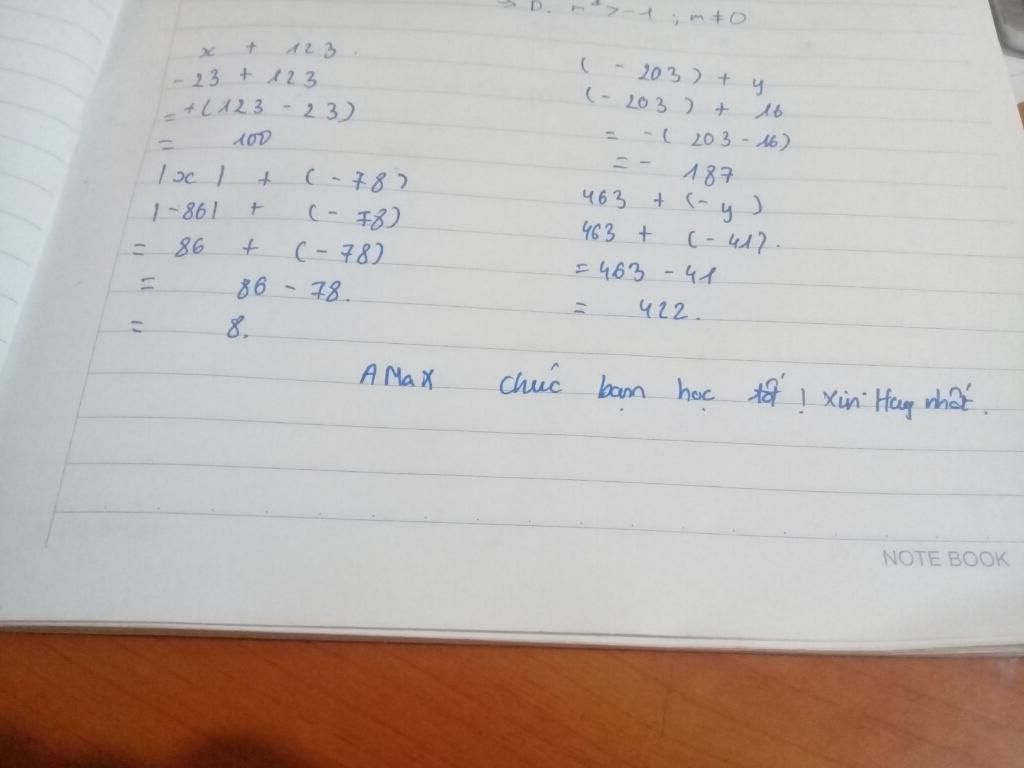 ⇒ D. m² > -1 ; m ≠ 0
x + 123.
- 23 + 123
= +(123 - 23)
= 100
|x| + (-78)
|-86| + (-78)
= 86 + (-78)
= 86 - 78.
= 8.
(-203) + y
(-203) + 16
= -(203-16)
= - 187
463 + (-y)
463 + (-41).
= 463 - 41
= 422.
AMaX chúc bạn học tốt ! Xin Hay nhất.
NOTE BOOK